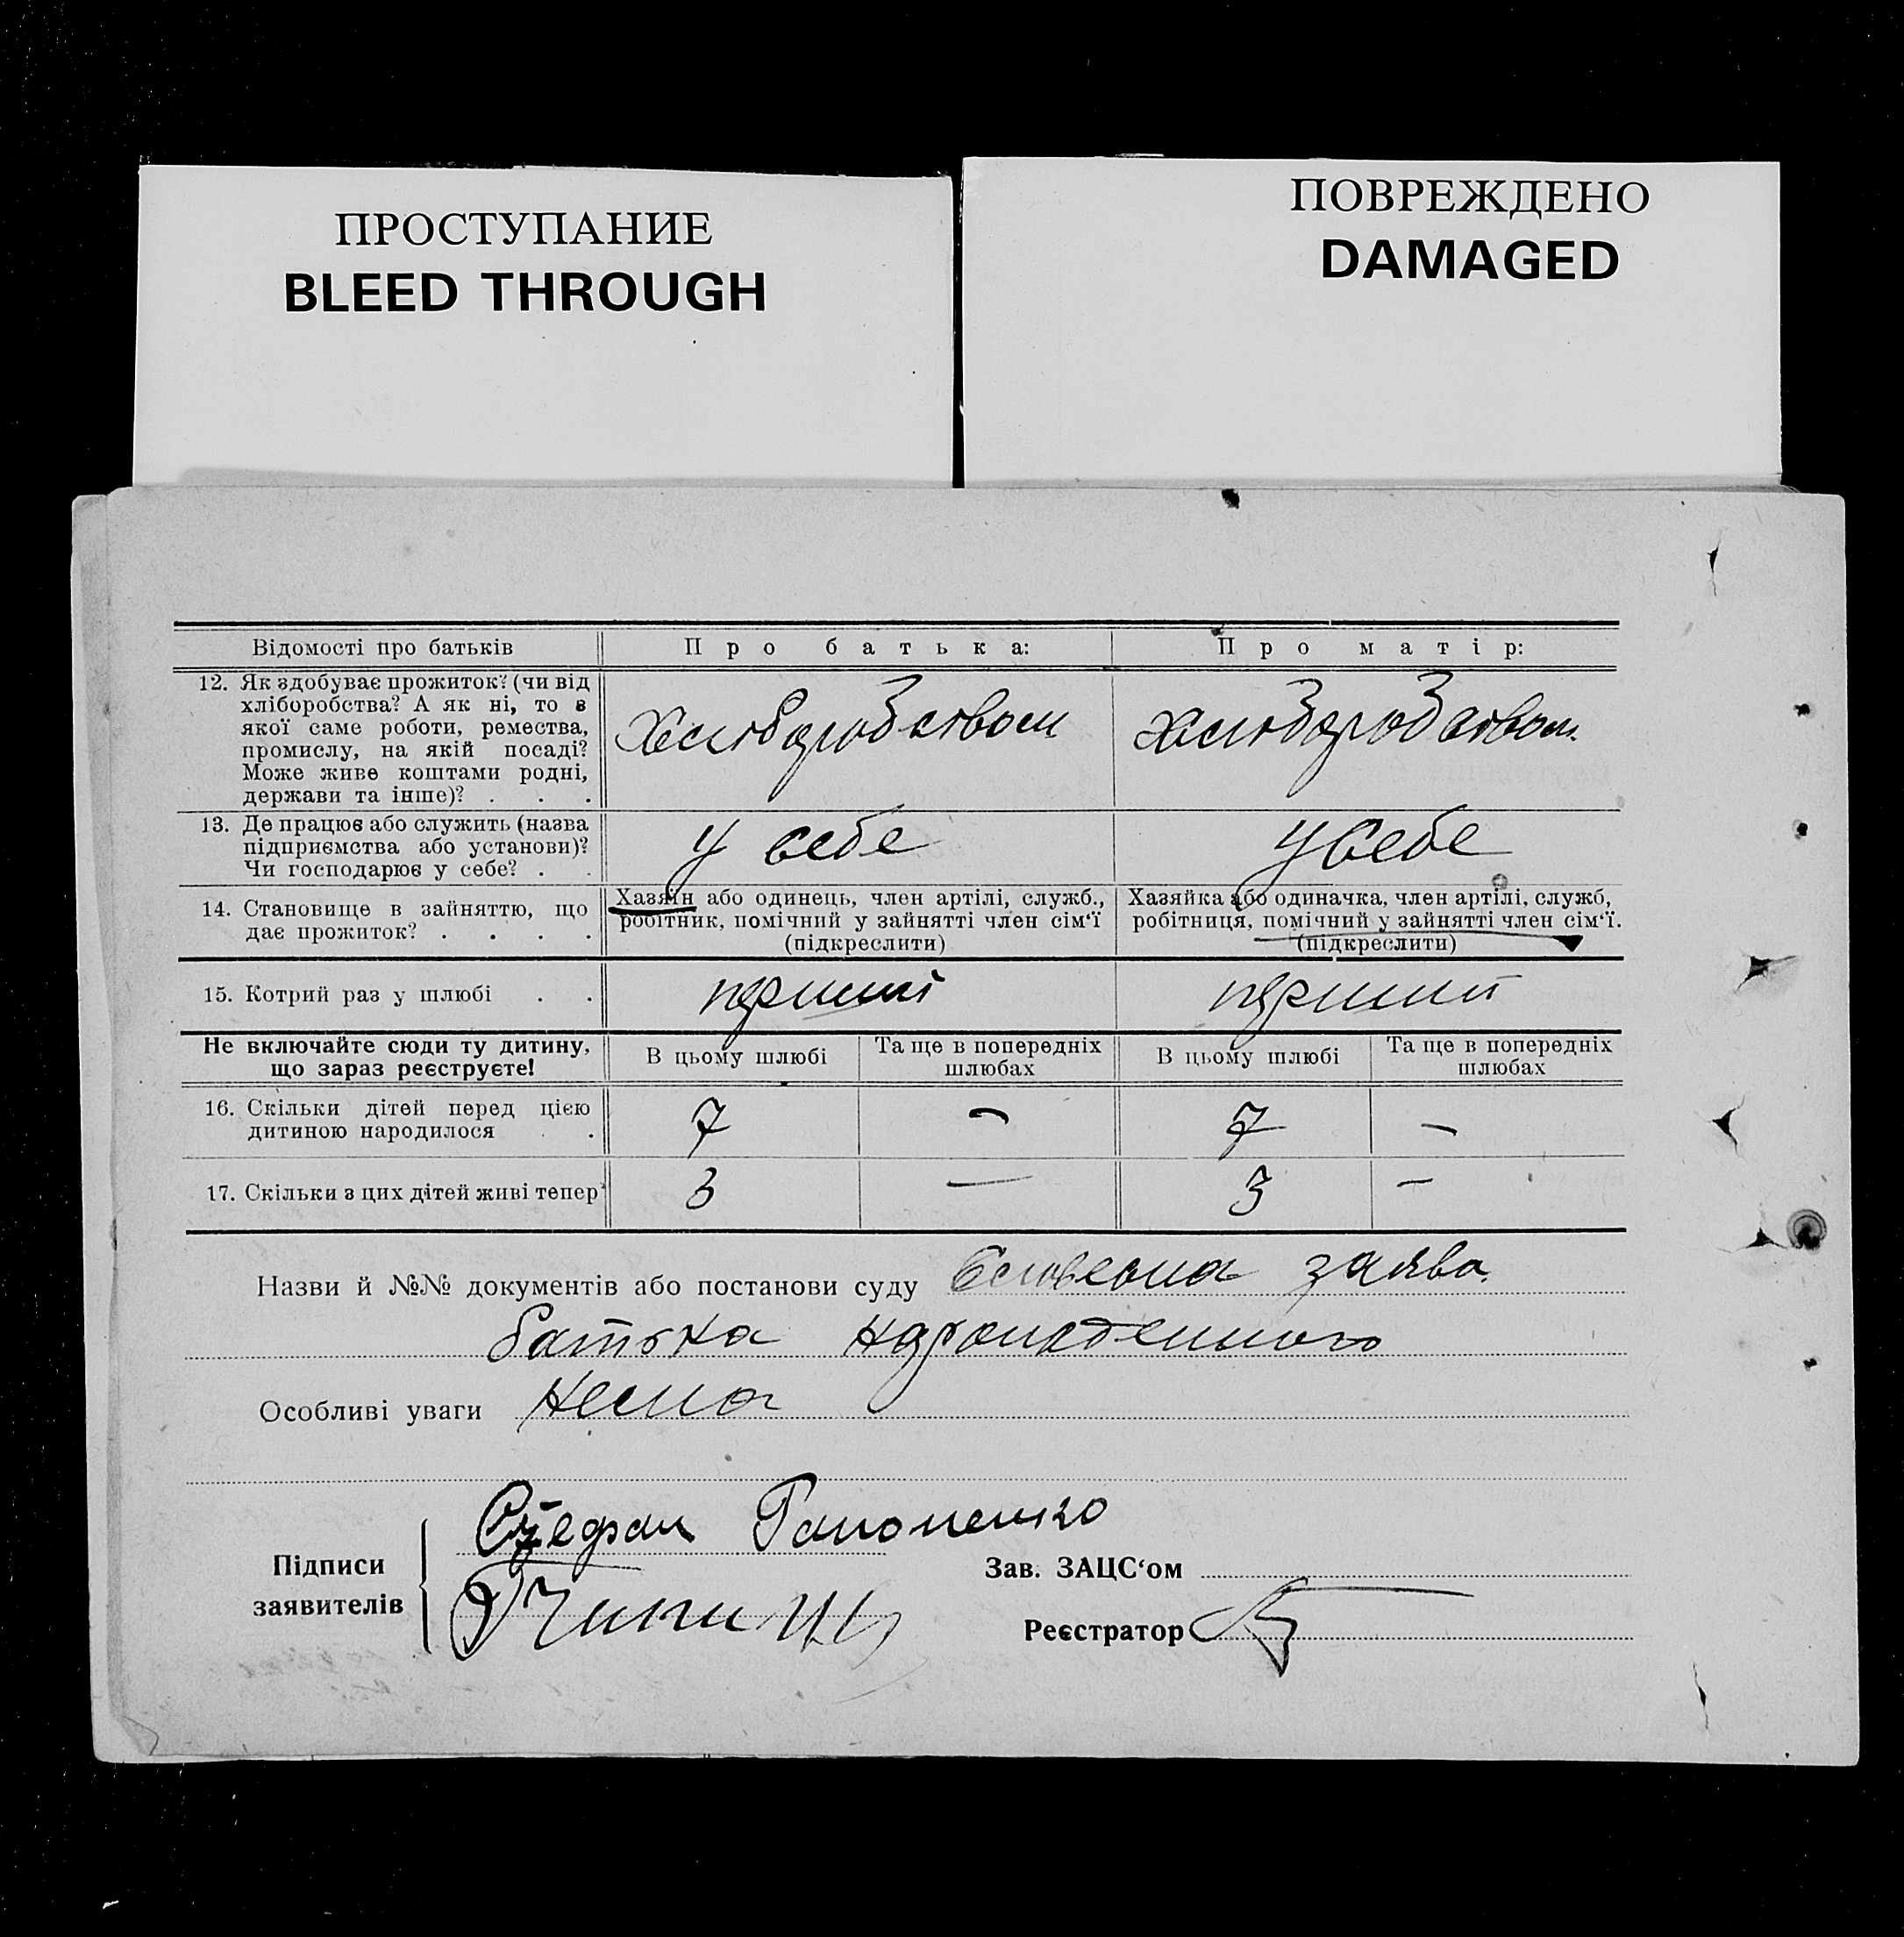 ПРОСТУПАНИЕ
BLEED THROUGH
ПОВРЕЖДЕНО
DAMAGED
Відомості про батьків
Про батька:
Про матір:
12. Як здобуває прожиток? (чи від
хліборобства? А як ні, то з
якої саме роботи, ремества,
промислу, на якій посаді?
Може живе коштами родні,
держави та інше)? . . .
Хлiборобством
Хлiборобством
13. Де працює або служить (назва
підприємства або установи)?
Чи господарює у себе? . .
у себе
у себе
14. Становище в зайняттю, що
дає прожиток? . . . .
Хазяїн або одинець, член артілі, служб.,
робітник, помічний у зайнятті член сім‘ї
(підкреслити)
Хазяйка або одиначка, член артілі, служб,
робітниця, помічний у зайнятті член сім‘ї.
(підкреслити)
15. Котрий раз у шлюбі . .
перший
перший
Не включайте сюди ту дитину,
що зараз реєструєте!
В цьому шлюбі
Та ще в попередніх
шлюбах
В цьому шлюбі
Та ще в попередніх
шлюбах
16. Скільки дітей перед цією
дитиною народилося . .
7
—
7
—
17. Скільки з цих дітей живі тепер
3
—
3
—
Назви й №№ документів або постанови суду Словесна заява
батька народженного
Особливі уваги Нема
Підписи
заявителів
Стефан
Зав. ЗАЦС‘ом
Реєстратор